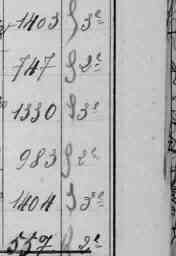 1403 } 3e
747 } 2e
1330 } 3e
983 } 2e
1404 } 3e
557 } 2e